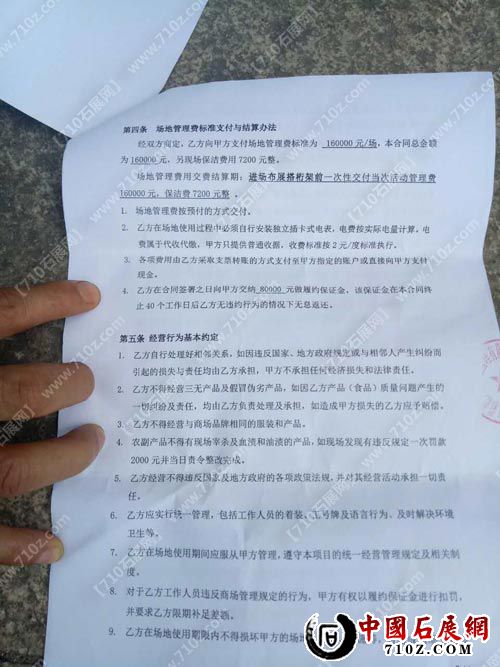 第四条 场地管理费标准支付与结算办法
经双方商定，乙方向甲方支付场地管理费标准为 160000元/场，本合同总金额
为160000元，另现场保洁费用7200元整。
场地管理费用交费结算期：进场布展搭桁架前一次性交付当次活动管理费
160000元，保洁费7200元整 。
1. 场地管理费按预付的方式交付。
2. 乙方在场地使用过程中必须自行安装独立插卡式电表，电费按实际电量计算，电
费属于代收代缴，甲方只提供普通收据，收费标准按2元/度标准执行。
3. 各项费用由乙方采取支票转账的方式支付至甲方指定的账户或直接向甲方支付
现金。
4. 乙方在合同签署之日向甲方交纳 80000 元做履约保证金、该保证金在本合同终
止40个工作日后乙方无违约行为的情况下无息返还。
第五条 经营行为基本约定
1. 乙方自行处理好相邻关系，如因违反国家、地方政府规定或与相邻人产生纠纷而
引起的损失与责任均由乙方承担，甲方不承担任何经济损失和法律责任。
2. 乙方不得经营三无产品及假冒伪劣产品，如因乙方产品（食品）质量问题产生的
一切纠纷及责任，均由乙方负责处理及承担，如造成甲方损失的乙方应予赔偿。
3. 乙方不得经营与商场品牌相同的服装和产品。
4. 农副产品不得有现场宰杀及血渍和油渍的产品，如现场发现有违反规定一次罚款
2000元并当日责令整改完成。
5. 乙方经营不得违反国家及地方政府的各项政策法规，并对其经营活动承担一切责
任。
6. 乙方应实行统一管理，包括工作人员的着装、工号牌及语言行为、及时解决环境
卫生等。
7. 乙方在场地使用期间应服从甲方管理，遵守本项目的统一经营管理规定及相关制
度。
8. 对于乙方工作人员违反商场管理规定的行为，甲方有权以履约保证金进行扣罚，
并要求乙方限期补足差额。
9. 乙方在场地使用期限内不得损坏甲方的场地
中國石展网
710Z.com
【710石展网】
www.710z.com